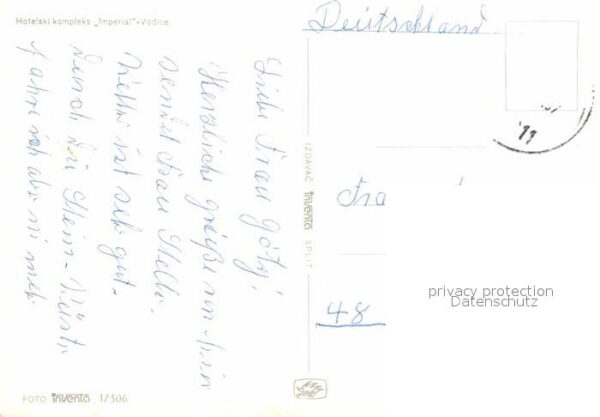 Hotelski kompleks „Imperial"-Vodice
Deutschland
Liebe Frau Götz!
Herzliche Grüße von hier
sendet Frau Stelli.
Wetter ist seh gut.
Durch die Stein-Küste
fahre ich aber ni meh
IZDAVAČ inventa SPLIT
Fra
48
privacy protection
Datenschutz
FOTO inventa 1/506